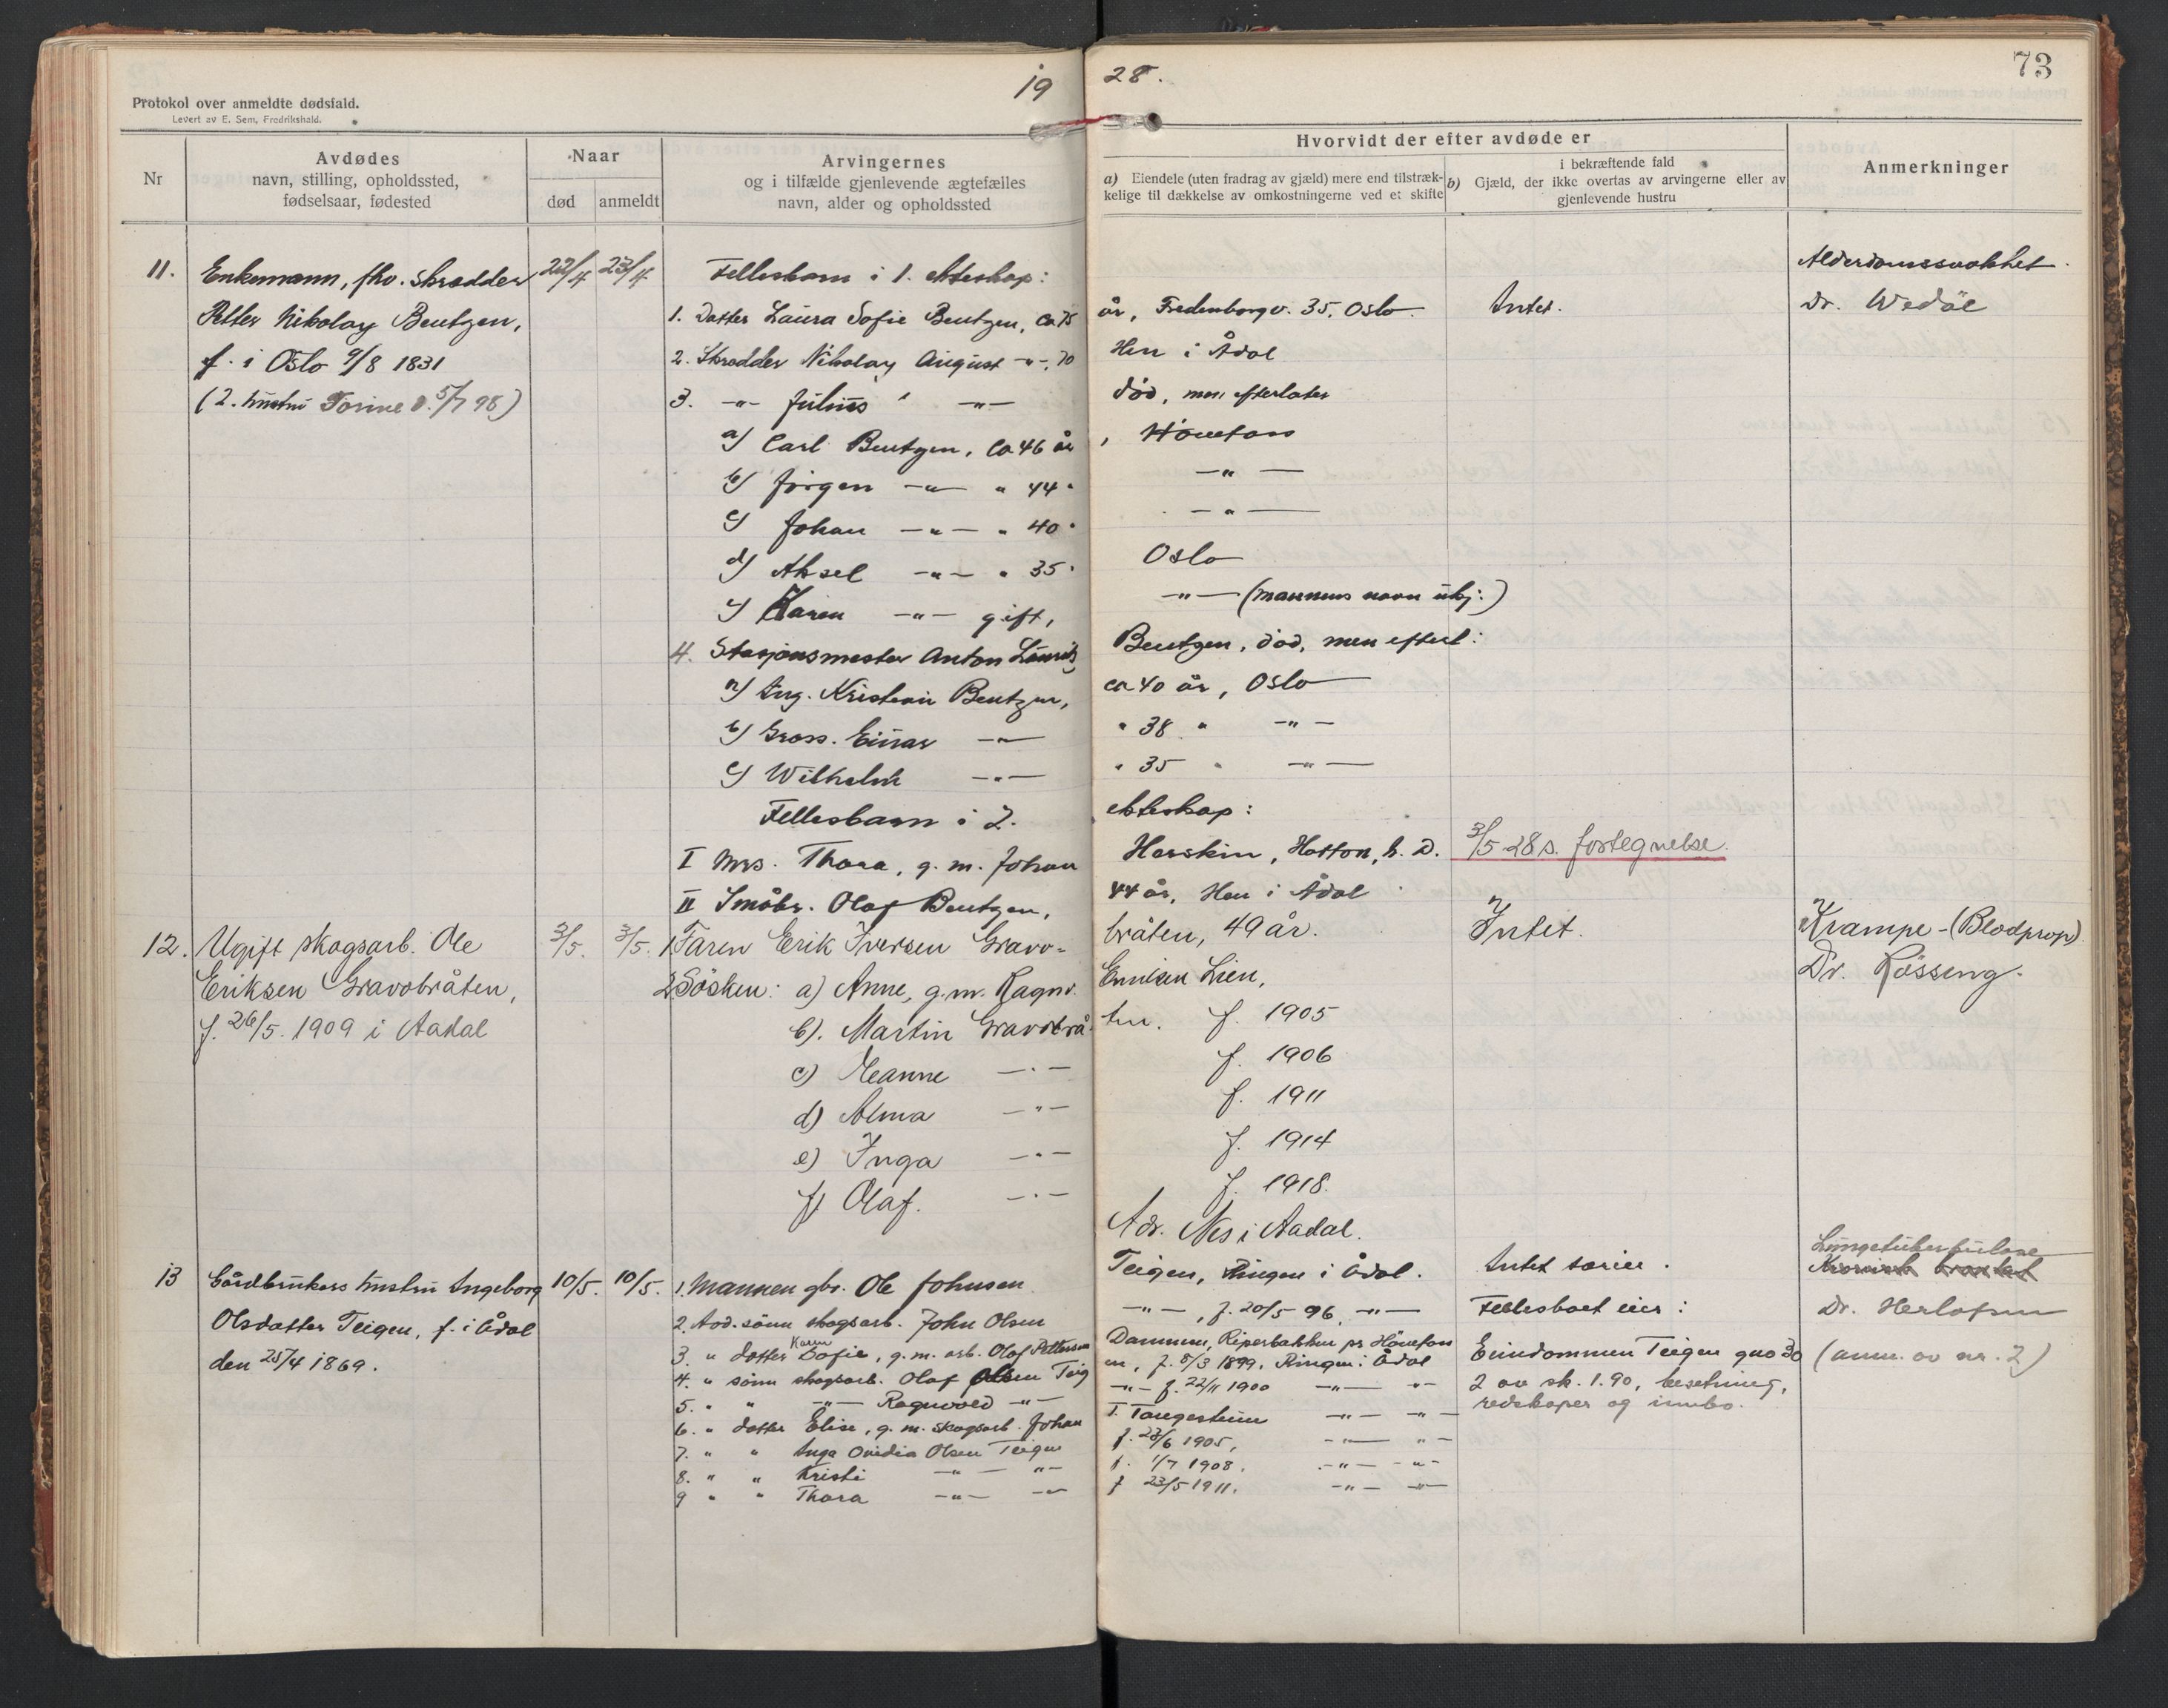 19
28.
73
Protokol over anmeldte dødsfald.
Levert av E. Sem, Fredrikshald.
Nr
Avdødes
navn, stilling, opholdssted,
fødselsaar, fødested
Naar
død
anmeldt
Arvingernes
og i tilfælde gjenlevende ægtefælles
navn, alder og opholdssted
Hvorvidt der efter avdøde er
a) Eiendele (uten fradrag av gjæld) mere end tilstræk-
kelige til dækkelse av omkostningerne ved et skifte
i bekræftende fald
b) Gjæld, der ikke overtas av arvingerne eller av
gjenlevende hustru
Anmerkninger
11.
Enkemann, fhv. skrædder
Petter Nikolay Bentzen,
f. i Oslo 9/8 1831
(2. hustru Torine d. 5/7 98)
22/4
23/4
Fellesbarn i 1. ekteskap:
1. Datter Laura Sofie Bentzen, ca 75 år, Fredenborgv. 35, Oslo.
2. Skrædder Nikolay August -"-, 70 Hen i Ådal
3. -"- Julius " -"- død, men efterlater
a) Carl Bentzen, ca 46 år, Hønefoss
b) Jørgen -"- " 44 " -"-
c) Johan -"- " 40 " -"-
d) Aksel -"- " 35 " Oslo
e) Karen -"- gift, -"- (mannens navn ubj:)
4. Stasjonsmester Anton Lauritz Bentzen, død, men efterl:
a) Ing. Kristian Bentzen, ca 40 år, Oslo
b) Gross. Einar -"- " 38 " -"-
c) Wilhelm -"- " 35 " -"-
Fellesbarn i 2. ekteskap:
I Mrs. Thora, g. m. Johan Harskin, Hatton, N. D.
II Småbr. Olaf Bentzen, 44 år, Hen i Ådal
Intet.
3/5 28 s. fortegnelse.
Alderdomssvakhet.
Dr. Wedøe
12.
Ugift skogsarb. Ole
Eriksen Gravobråten,
f. 26/5. 1909 i Aadal
3/5.
3/5.
1 Faren Erik Iversen Gravo-bråten, 49 år.
2 Søsken: a) Anne, g.m. Ragnv. Emilsen Lien,
b). Martin Gravobrå-ten. f. 1905
c) Meanne -"- f. 1906
d) Alma -"- f. 1911
e) Inga -"- f. 1914
f) Olaf. -"- f. 1918.
Adr. Nes i Aadal.
Intet.
Krampe - (Blodprop)
Dr. Røssing.
13
Gårdbrukers hustru Ingeborg
Olsdatter Teigen, f. i Ådal
den 25/4 1869.
10/5.
10/5.
1. Mannen gbr. Ole Johnsen Teigen, Ringen i Ådal.
2. Avd. sønn skogsarb. John Olsen -"-, f. 20/5 96, -"-
3. " datter Karen Sofie, g. m. arb. Olaf Pettersen Dammen, Riperbakken pr Hönefoss
4. " sønn skogsarb. Olaf Olsen Teig en, f. 8/3 1899, Ringen i Ådal
5. " " -"- Ragnvald -"- -"- f. 22/11 1900 -"- "-
6. " datter Elise, g. m. skogsarb. Johan T. Tangestuen -"- -"-
7. " " Inga Ovidia Olsen Teigen f. 23/6 1905, -"- "-
8. " " Kristi -"- "- f. 1/7 1908. -"- -"-
9 " " Thora -"- -"- f 23/5 1911. -"- -"-
Intet særeie.
Fellesboet eier:
Eiendommen Teigen gno 30
2 av sk. 1.90, besetning,
redskaper og innbo.
Lungetuberkulose
Dr. Herlofsen
(anm. av nr. 2)